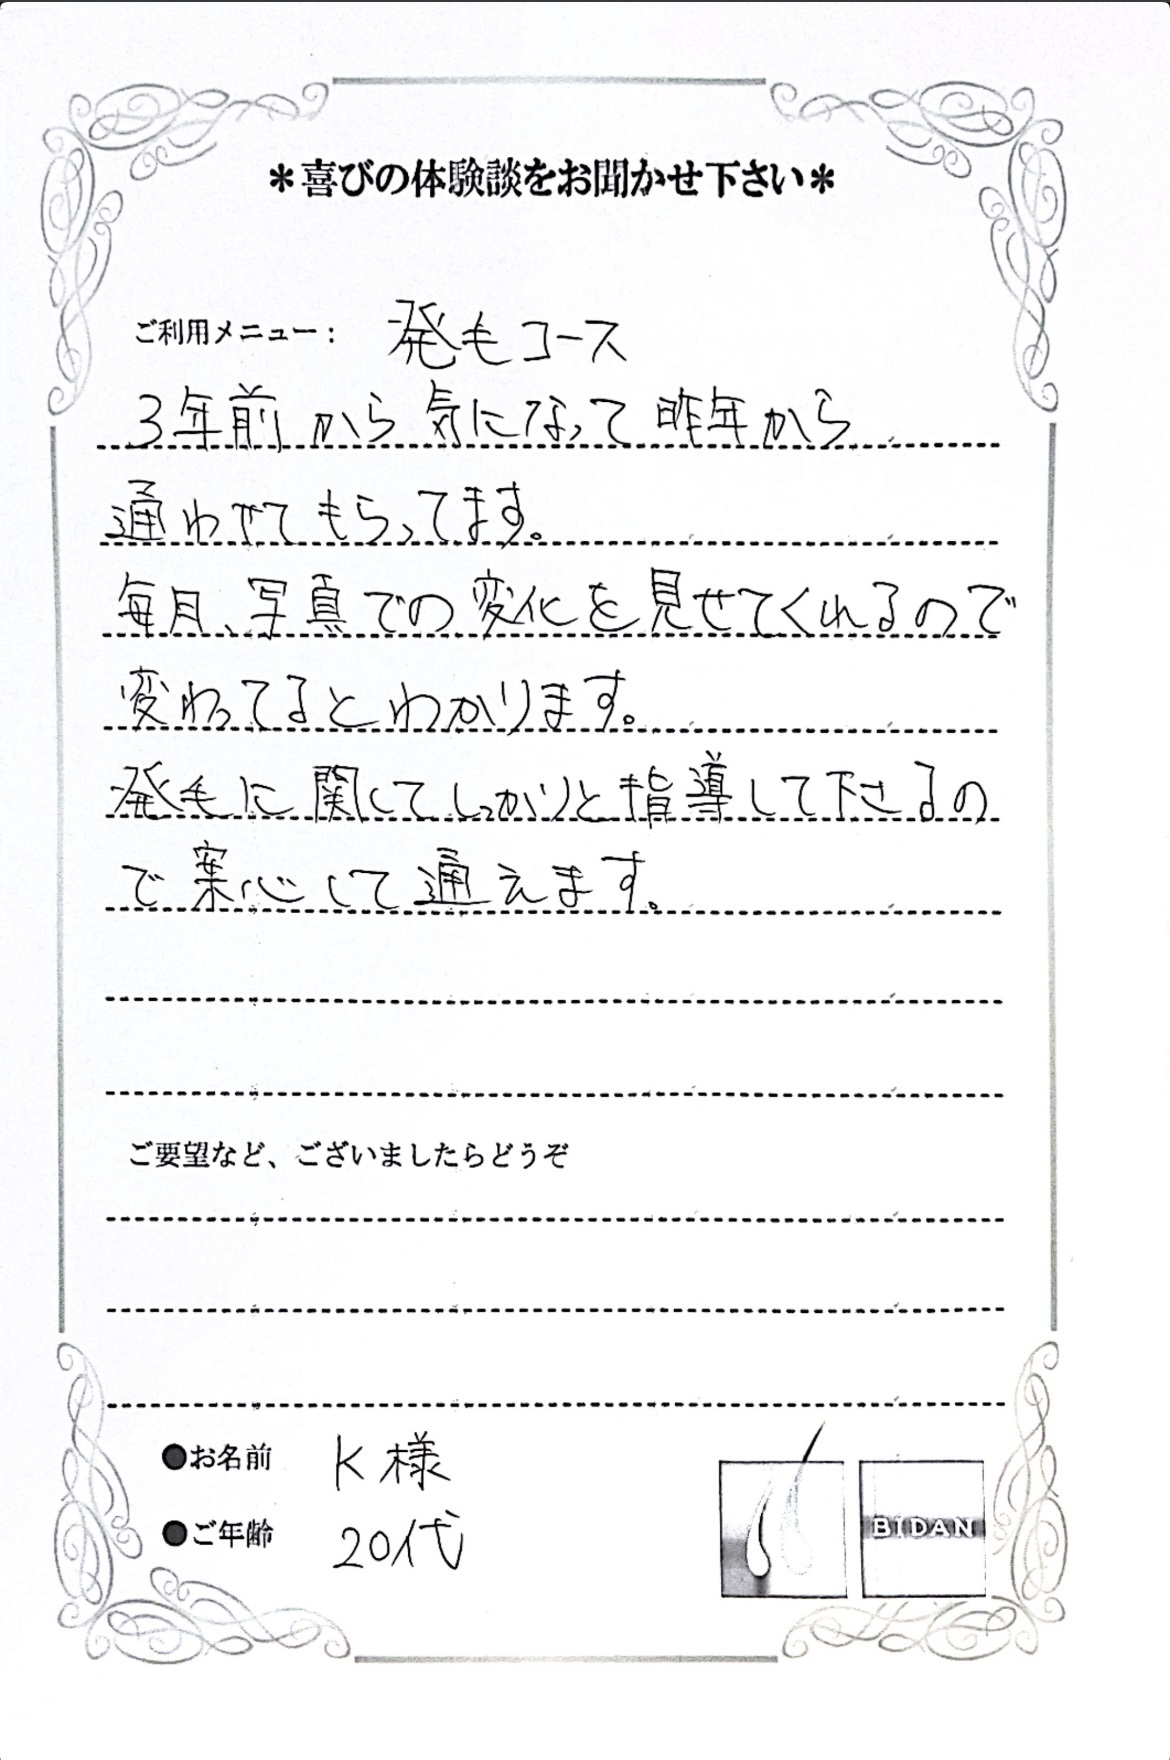 ＊喜びの体験談をお聞かせ下さい＊
ご利用メニュー： 発毛コース
3年前から気になって昨年から
通わせてもらってます。
毎月、写真での変化を見せてくれるので
変わってるとわかります。
発毛に関してしっかりと指導して下さるの
で案心して通えます。
ご要望など、ございましたらどうぞ
●お名前 K様
●ご年齢 20代
BIDAN